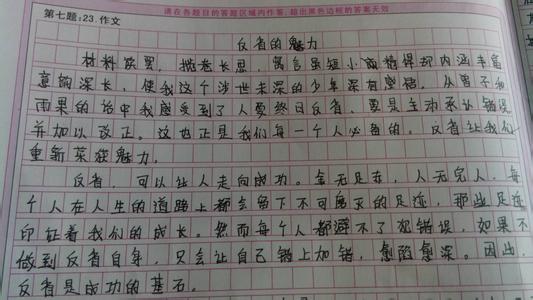 请在各题目的答题区域内作答,超出黑色边框的答案无效
第七题:23.作文
反省的魅力
材料放置,掩卷长思,寓言虽短小而精悍却内涵丰富
意韵深长,使我这个涉世未深的少年深有感悟。从曾子和
雨果的话中我感受到了人要终日反省,更是主动承认错误
并加以改正。这也正是我们每一个人必备的。反省让我们
重新获魅力。
反省,可以让人走向成功。金无足赤,人无完人,每
个人在人生的道路上都会留下不可磨灭的足迹,那些足迹
印证着我们的成长。然而每个人都避不了犯错误,如果不
做到反省自身,只会让自己错上加错,愈陷愈深。因此,
反省是成功的基石。